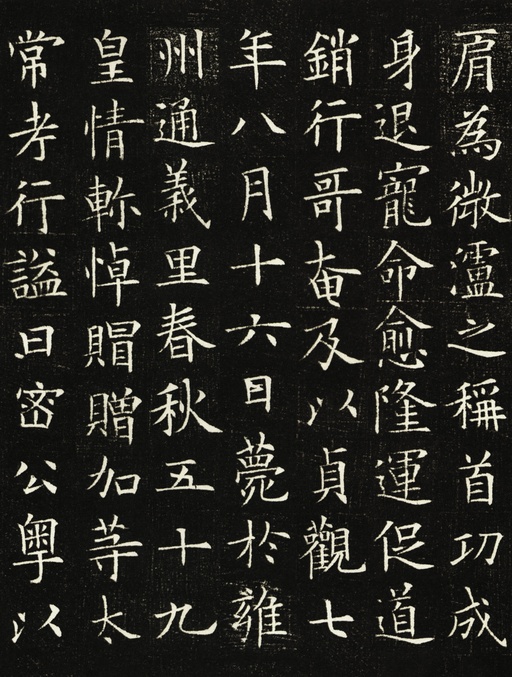 肩為微瀘之稱首功成
身退寵命愈隆運促道
銷行哥奄及以貞觀七
年八月十六日薨於雍
州通義里春秋五十九
皇情軫悼賵贈加等太
常考行諡曰密公粵以